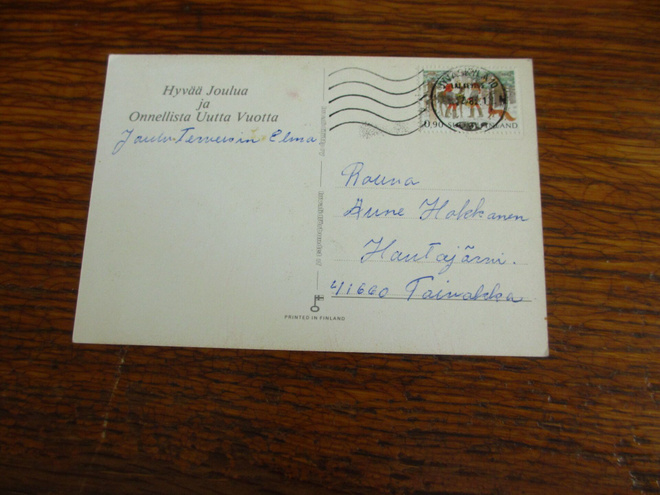 Hyvää Joulua
ja
Onnellista Uutta Vuotta
Joulu-Terveisin Elma
0,90 SUOMI FINLAND
Rouva
Aune Hokkanen
Hautajärvi.
41660 Toivakka
PRINTED IN FINLAND